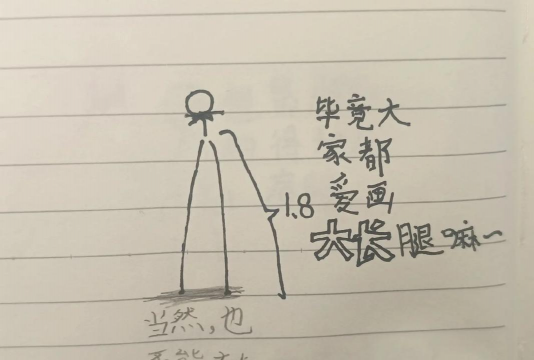 毕竟大
家都
1.8
爱画
大长腿嘛~
当然,也